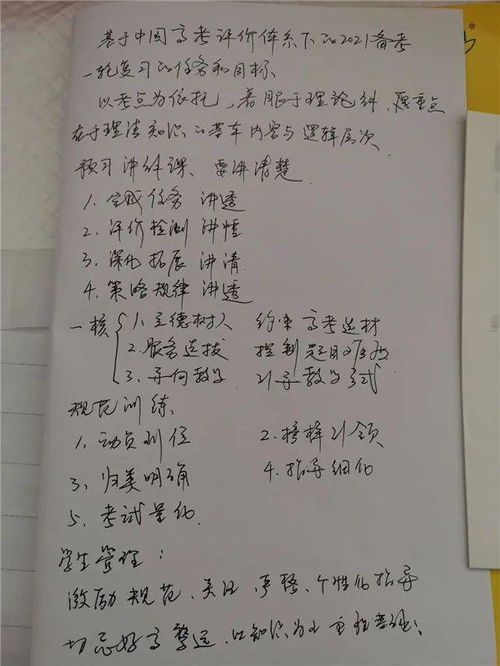 基于中国高考评价体系下的2021备考
一轮复习的任务和目标
以考点为依托，着眼于理论科，重点
在于理清知识的基本内容与逻辑层次
预习讲评课、要讲清楚
1. 完成任务 讲透
2. 评价检测 讲懂
3. 深化拓展 讲清
4. 策略规律 讲透
一核 1. 立德树人 约束高考选材
2. 服务选拔 控制题目难度
3. 导向教学 引导教学方式
规范训练
1. 动员到位 2. 榜样引领
3. 归类明确 4. 指导细化
5. 考试量化
学生管理：
激励 规范、关注、严格、个性化指导
切忌好高骛远，以知识为主